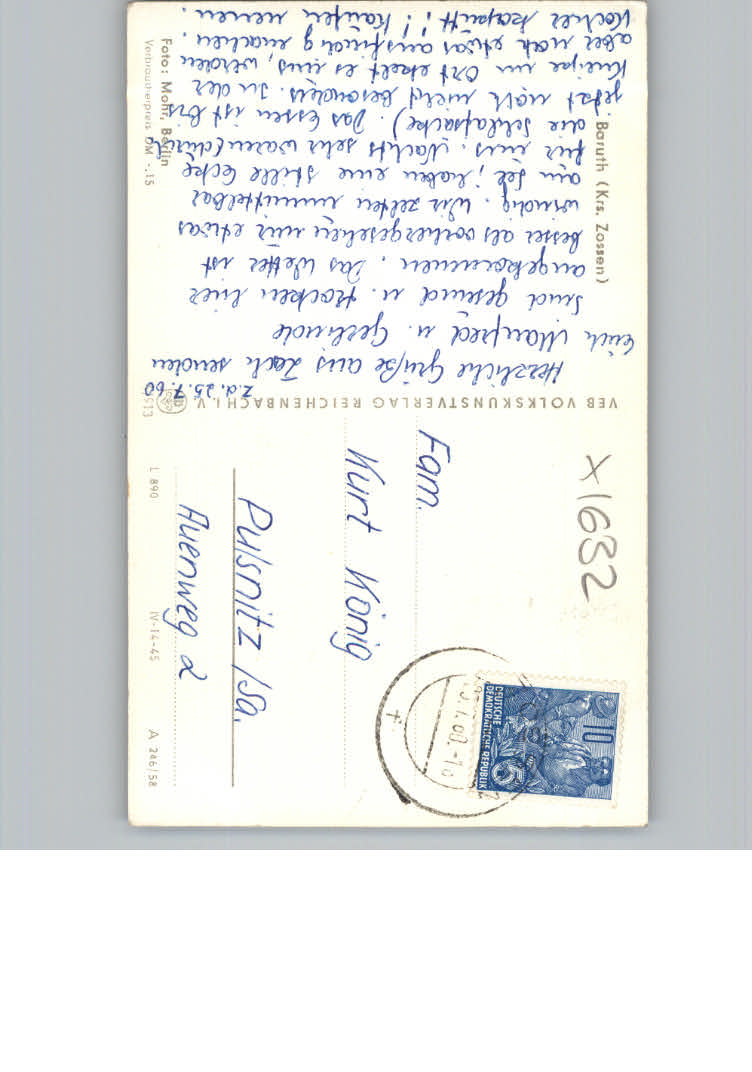 Baruth (Krs. Zossen)
z.d. 25.7.60
Herzliche Grüße aus senden
Euch Manfred u. Gerlinde
Sind gesund u. trocken hier
angekommen. Das Wetter ist
besser als vorhergesehen nur etwas
windig. Wir zelten unmittelbar
am See; haben eine stille Ecke
für uns. Nachts sehr warm (durch
die Schlafsäcke). Das Essen ist bis
jetzt noch nicht besonders. In der
Kneipe im Ort ekelt es uns, werden
aber noch etwas ausfindig machen.
Kocher kaputt!! Kaufen neuen.
Foto: Mohr, Berlin
Verbraucherpreis DM -.15
VEB VOLKSKUNSTVERLAG REICHENBACH I. V.
X1632
10
5
DEUTSCHE
DEMOKRATISCHE REPUBLIK
Fam.
Kurt König
Pulsnitz /Sa.
Auenweg 2
L 890
IV-14-45
A 246/58